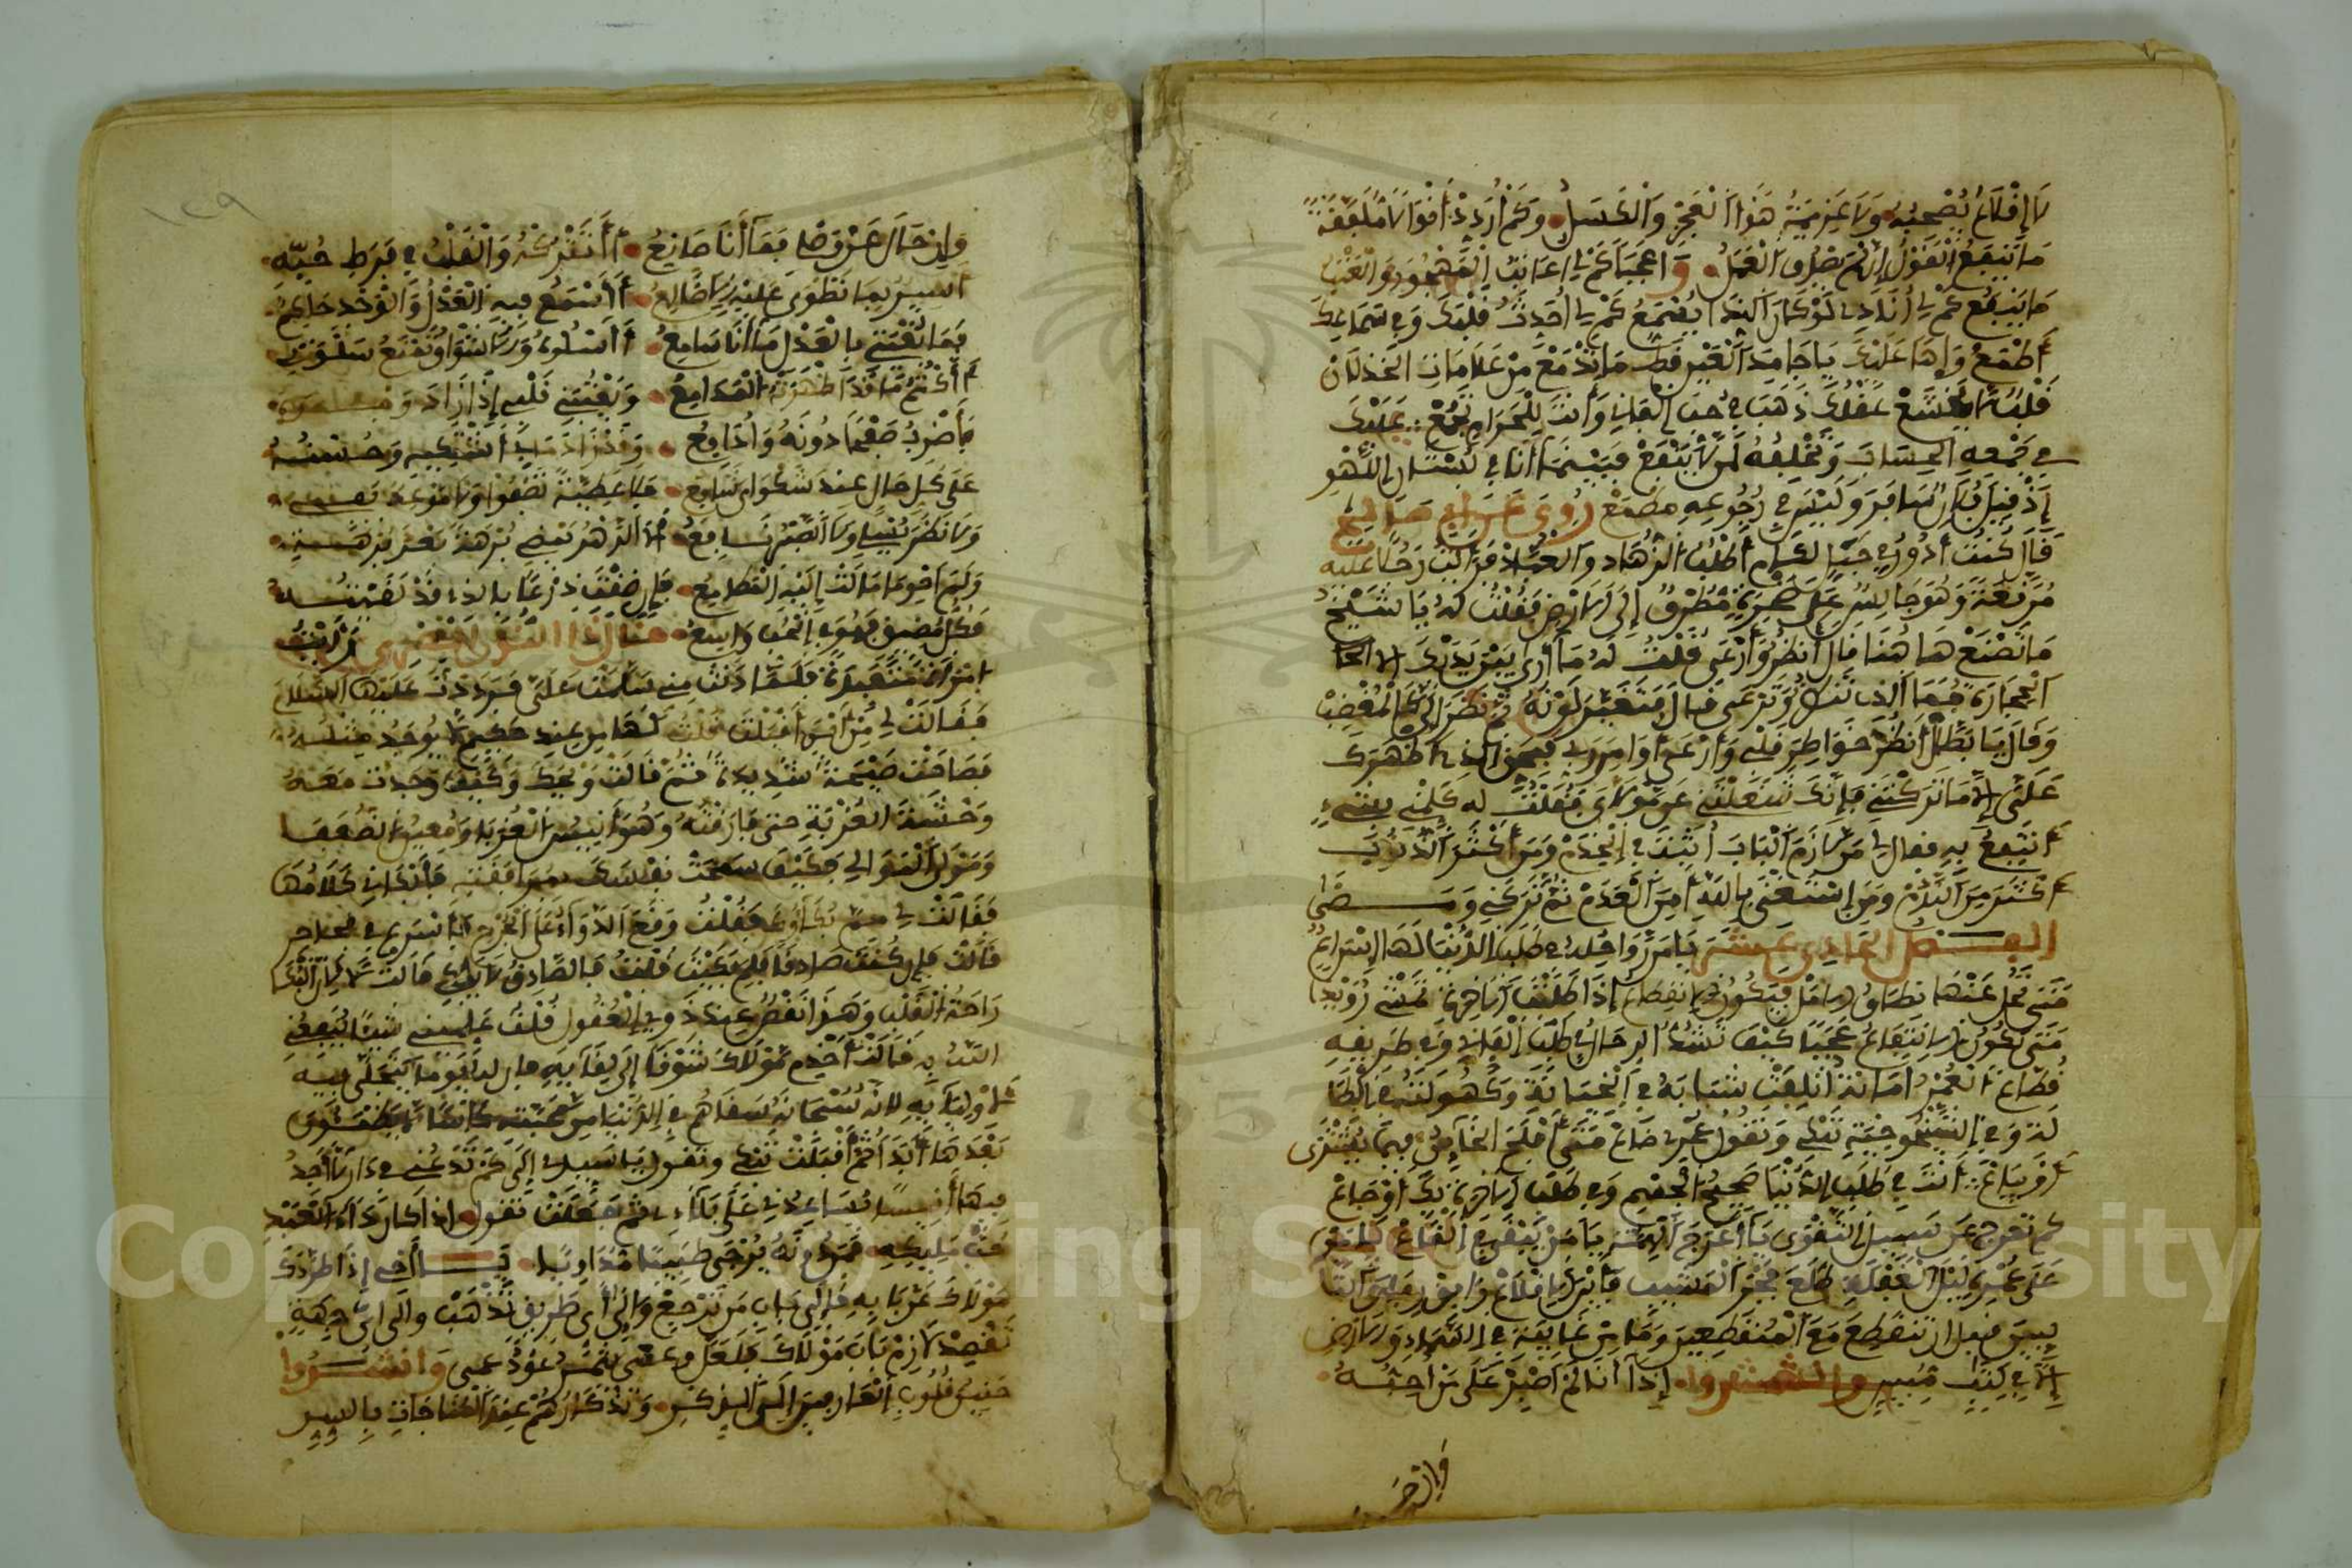 لا إقلاع يصحبه ولا عزيمة هذا العجز والكسل وكم أردد أقوالا ملفقة
ما ينفع القول إن لم يصدق العمل واعجبا كم لي أعاتب المهجور والعتب
ما ينفع كم لي أنادي لو كان الندا يسمع كم لي أحدث قلبك وفي سماعك
أطمع واها عليك يا جامد العين قط ما تدمع من علامات الخذلان
قلب لا يخشع عقلك ذهب في حب الفاني وأنت للحرام تجمع عليك
في جمعه الحساب وتخلفه لمن لا ينفع فبينما أنا في بستان اللهو
إذ قيل فلان سافر وليس في رجوعه مطمع روي عن أبي صالح
قال كنت أدور في جبال لكام أطلب الزهاد والعباد فرأيت رجلا عليه
مرقعة وهو جالس على صخرة مطرق إلى الأرض فقلت له يا شيخ
ما تصنع ها هنا قال أنظر وأرعى فقلت له ما أرى بين يديك إلا
الحجارة فما الذي تنظر وترعى قال فتغير لونه ثم نظر إلي كالمغضب
وقال يا بطال أنظر خواطر قلبي وأرعى أوامر ربي فبحق الذي أظهرك
علي إلا ما تركتني فإنك شغلتني عن مولاي فقلت له كلمني بشيء
أنتفع به فقال لي من لازم الباب أثبت في الخدم ومن أكثر الذنوب
أكثر من الندم ومن استغنى بالله أمن العدم ثم تركني ومضى
الفصل الحادي عشر يا من رواحله في طلب الدنيا لها إسراع
متى تحل عنها نطاق الأمل فيكون الانقطاع إذا طلبت الآخرة تمشي رويدا
متى يكون الانتفاع عجبا كيف تشد الرحال في طلب الفاني وفي طريقه
قطاع العمر أمانة أتلفت شبابه في الخيانة وكهولته في البطالة
وفي الشيخوخية تبكي وتقول عمري ضاع متى أفلح الخائن فيما يشترى
أو يباع أنت في طلب الدنيا صحيح الجسم وفي طلب الآخرة بك أوجاع
كم تعرج عن سبيل التقوى يا أعرج الهمة يا من يبقى في القاع يا من
على عمره ليل الغفلة طلع فجر المشيب فأين الإقلاع وافق رفاق التائبين
قبل أن تنقطع مع المنقطعين وما من غائبة في السماء والأرض
إلا في كتاب مبين وانشدوا إذا أنا لم أصبر على من أحبه
وإن حال
وإن حال عن وصلي فما أنا صانع أأتركه والقلب في فرط حبه
أسير بما تطوى عليه الأضالع أأسمع فيه العذل والوجد حاكم
فما تعبتني بالعذل ما أنا سامع أأسلوه والأشواق تمنع سلوتي
أأكتم ما قد أظهرته المدامع ويفتنني قلبي إذا زاد
فأضرب صفحا دونه وأدافع وقد زاد ما بي أشتكيه وحسنه
على كل حال عند شكواي شافع
ولا نظر يسلي ولا الصبر نافع أرى الدهر يمضي برهة بعد برهة
ولم أحو ما مالت إليه المطامع فإن ضقت ذرعا بالذي قد لقيته
فكل مضيق فهو في الحب واسع قال ذا النون المصري رأيت
امرأة متعبدة فلما دنت مني سلمت علي فرددت عليها السلام
فقالت لي من أين أقبلت قلت لها من عند حكيم لا يوجد مثله
فصاحت صيحة شديدة ثم قالت ويحك وكيف وجدت معه
وحشة الغربة حتى فارقته وهو أنيس الغربا ومعين الضعفا
ومولى الموالي فكيف سمحت نفسك بمفارقته فأبكاني كلامها
فقالت لي مم بكاؤك فقلت وقع الدواء على الجرح فأسرع في نجاحه
قالت فإن كنت صادقا فلم بكيت قلت فالصادق لا يبكي قالت لا لأن البكا
راحة القلب وهذا نقص عند ذوي العقول قلت علميني شيئا ينفعني
الله به قالت اخدم مولاك شوقا إلى لقائه فإن له يوما يتجلى فيه
لأوليائه لأنه سبحانه سقاهم في الدنيا من محبته كأسا لا يظمئون
بعدها أبدا ثم أقبلت تبكي وتقول يا سيدي إلى كم تدعني في دار لا أجد
فيها أنيسا يساعدني على بلائي ثم جعلت تقول إذا كان داء العبد
حب مليكه فمن دونه يرجى طبيبا مداويا يا أخي إذا طردك
مولاك عن بابه فإلى باب من ترجع وإلى أي طريق تذهب وإلى أي جهة
تقصد لازم باب مولاك فلعل وعسى يثمر عود عسى وانشدوا
حنين قلوب العارفين إلى الذكر وتذكارهم عند المناجاة بالسر